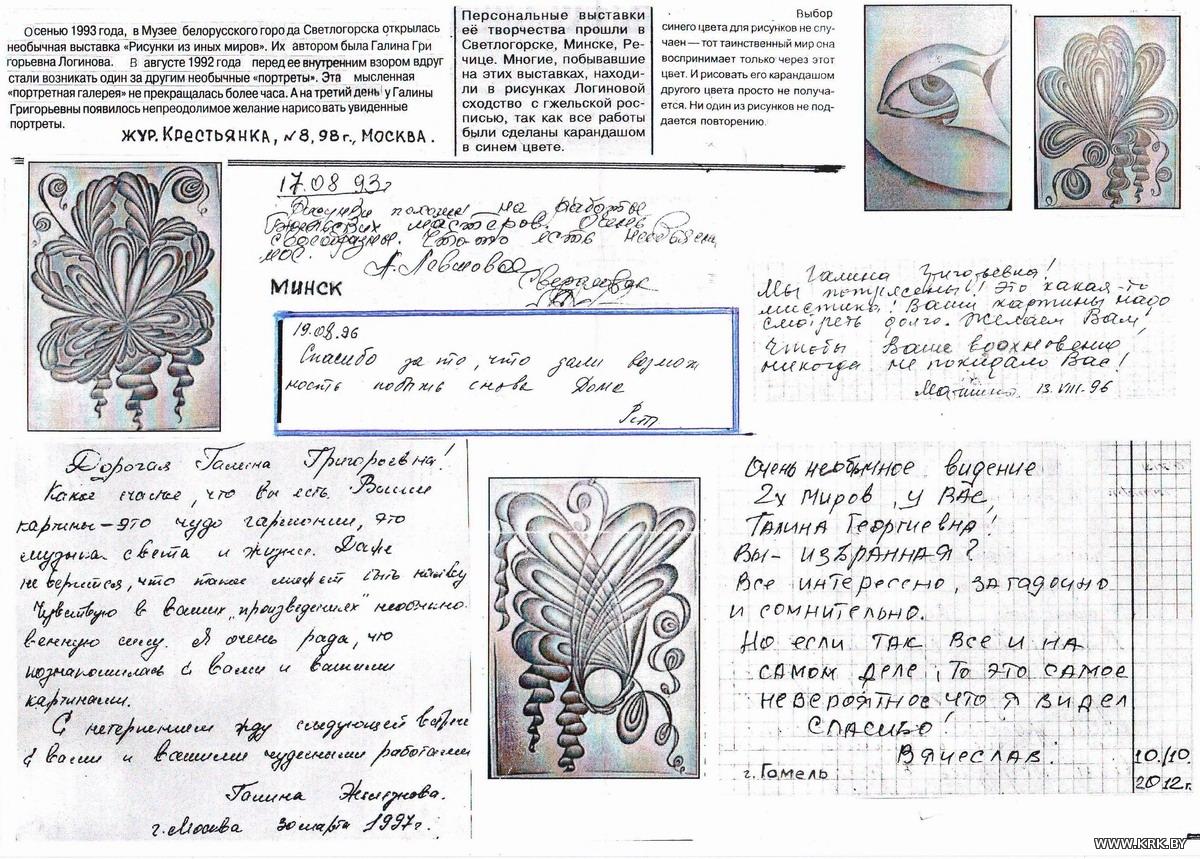 Осенью 1993 года, в Музее белорусского города Светлогорска открылась
необычная выставка «Рисунки из иных миров». Их автором была Галина Гри
горьевна Логинова. В августе 1992 года перед ее внутренним взором вдруг
стали возникать один за другим необычные «портреты». Эта мысленная
«портретная галерея» не прекращалась более часа. А на третий день у Галины
Григорьевны появилось непреодолимое желание нарисовать увиденные
портреты.
ЖУР. КРЕСТЬЯНКА, №8, 98г., МОСКВА.
Персональные выставки
её творчества прошли в
Светлогорске, Минске, Ре-
чице. Многие, побывавшие
на этих выставках, находи-
ли в рисунках Логиновой
сходство с гжельской рос-
писью, так как все работы
были сделаны карандашом
в синем цвете.
Выбор
синего цвета для рисунков не слу-
чаен — тот таинственный мир она
воспринимает только через этот
цвет. И рисовать его карандашом
другого цвета просто не получа-
ется. Ни один из рисунков не под-
дается повторению.
17.08 93г
Рисунки похожи на работы
мастеров. Очень
своеобразные. Что-то есть необъясни
мое.
МИНСК
19.08.96
Спасибо за то, что дали возмож
ность побыть снова Дома
Галина Григорьевна!
Мы потрясены! Это какая-то
мистика! Ваши картины надо
смотреть долго. Желаем Вам,
чтобы Ваше вдохновение
никогда не покидало Вас!
13.VIII.96
Дорогая Галина Григорьевна!
Какое счастье, что вы есть. Ваши
картины – это чудо гармонии, это
музыка света и жизни. Даже
не верится, что такое может быть наяву
Чувствую в ваших „произведениях" необыкно-
венную силу. Я очень рада, что
познакомилась с вами и вашими
картинами.
С нетерпением жду следующей встречи
с вами и вашими чудесными работами
Галина
г. Москва 30 марта 1997г.
ОЧЕНЬ НЕОБЫЧНОЕ ВИДЕНИЕ
2х МИРОВ У ВАС,
ГАЛИНА ГЕОРГИЕВНА!
ВЫ – ИЗБРАННАЯ?
ВСЕ ИНТЕРЕССНО, ЗАГАДОЧНО
И СОМНИТЕЛЬНО.
НО ЕСЛИ ТАК ВСЕ И НА
САМОМ ДЕЛЕ, ТО ЭТО САМОЕ
НЕВЕРОЯТНОЕ ЧТО Я ВИДЕЛ
СПАСИБО!
ВЯЧЕСЛАВ.
г. Гомель
10./10.
2012г.
WWW.KRK.BY